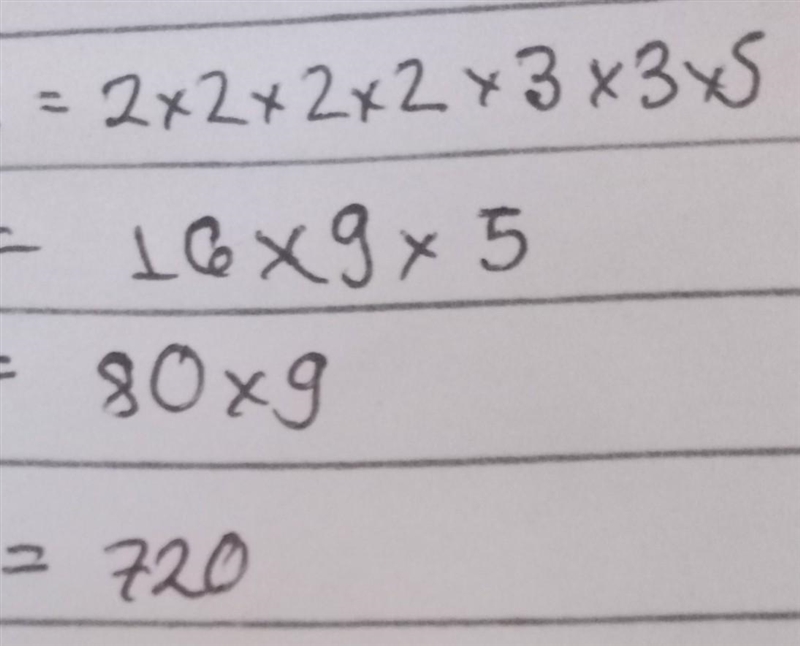 = 2 × 2 × 2 × 2 × 3 × 3 × 5
= 16 × 9 × 5
= 80 × 9
= 720